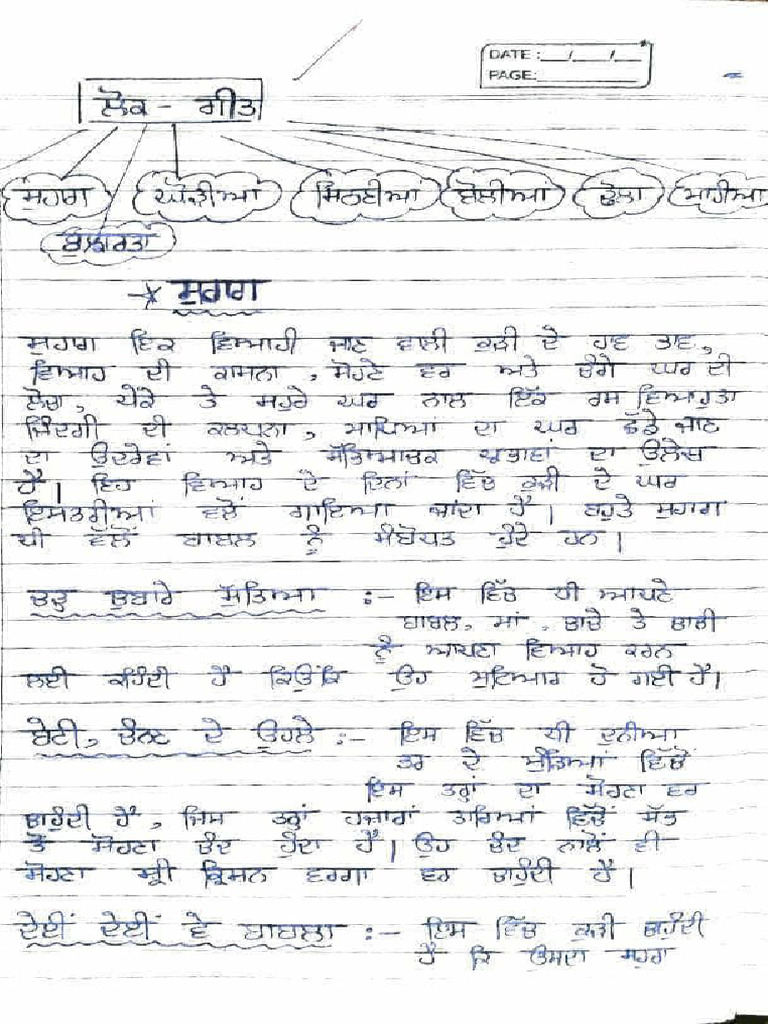 DATE :__/__/__
PAGE:
ਲੋਕ - ਗੀਤ
ਸੁਹਾਗ ਘੋੜੀਆਂ ਸਿਠਣੀਆਂ ਬੋਲੀਆਂ ਢੋਲਾ ਮਾਹੀਆ
ਬੁਝਾਰਤਾਂ
ਸੁਹਾਗ
ਸੁਹਾਗ ਇਕ ਵਿਆਹੀ ਜਾਣ ਵਾਲੀ ਕੁੜੀ ਦੇ ਹਾਵ ਭਾਵ,
ਵਿਆਹ ਦੀ ਕਾਮਨਾ, ਸੋਹਣੇ ਵਰ ਅਤੇ ਚੰਗੇ ਘਰ ਦੀ
ਲੋਚਾ, ਪੇਕੇ ਤੇ ਸਹੁਰੇ ਘਰ ਨਾਲ ਇੱਕ ਰਸ ਵਿਆਹੁਤਾ
ਜ਼ਿੰਦਗੀ ਦੀ ਕਲਪਨਾ, ਮਾਪਿਆਂ ਦਾ ਘਰ ਛੱਡੇ ਜਾਣ
ਦਾ ਉਦਰੇਵਾਂ ਅਤੇ ਸੱਭਿਆਚਾਰਕ ਪ੍ਰਭਾਵਾਂ ਦਾ ਉਲੇਖ
ਹੈ। ਇਹ ਵਿਆਹ ਦੇ ਦਿਨਾਂ ਵਿੱਚ ਕੁੜੀ ਦੇ ਘਰ
ਇਸਤਰੀਆਂ ਵਲੋਂ ਗਾਇਆ ਜਾਂਦਾ ਹੈ। ਬਹੁਤੇ ਸੁਹਾਗ
ਧੀ ਵੱਲੋਂ ਬਾਬਲ ਨੂੰ ਸੰਬੋਧਤ ਹੁੰਦੇ ਹਨ।
ਚੜ੍ਹ ਚੁਬਾਰੇ ਸੁੱਤਿਆ :- ਇਸ ਵਿੱਚ ਧੀ ਆਪਣੇ
ਬਾਬਲ, ਮਾਂ, ਚਾਚੇ ਤੇ ਚਾਚੀ
ਨੂੰ ਆਪਣਾ ਵਿਆਹ ਕਰਨ
ਲਈ ਕਹਿੰਦੀ ਹੈ ਕਿਉਂਕਿ ਉਹ ਮੁਟਿਆਰ ਹੋ ਗਈ ਹੈ।
ਬੇਟੀ, ਚੰਨਣ ਦੇ ਉਹਲੇ :- ਇਸ ਵਿੱਚ ਧੀ ਦੁਨੀਆ
ਭਰ ਦੇ ਮੁੰਡਿਆਂ ਵਿੱਚੋਂ
ਇਸ ਤਰ੍ਹਾਂ ਦਾ ਸੋਹਣਾ ਵਰ
ਚਾਹੁੰਦੀ ਹੈ, ਜਿਸ ਤਰ੍ਹਾਂ ਹਜ਼ਾਰਾਂ ਤਾਰਿਆਂ ਵਿੱਚੋਂ ਸੱਭ
ਤੋਂ ਸੋਹਣਾ ਚੰਦ ਹੁੰਦਾ ਹੈ। ਉਹ ਚੰਦ ਨਾਲੋਂ ਵੀ
ਸੋਹਣਾ ਸ੍ਰੀ ਕ੍ਰਿਸ਼ਨ ਵਰਗਾ ਵਰ ਚਾਹੁੰਦੀ ਹੈ।
ਦੇਈਂ ਦੇਈਂ ਵੇ ਬਾਬਲਾ :- ਇਸ ਵਿੱਚ ਕੁੜੀ ਚਾਹੁੰਦੀ
ਹੈ ਕਿ ਉਸਦਾ ਸਹੁਰਾ